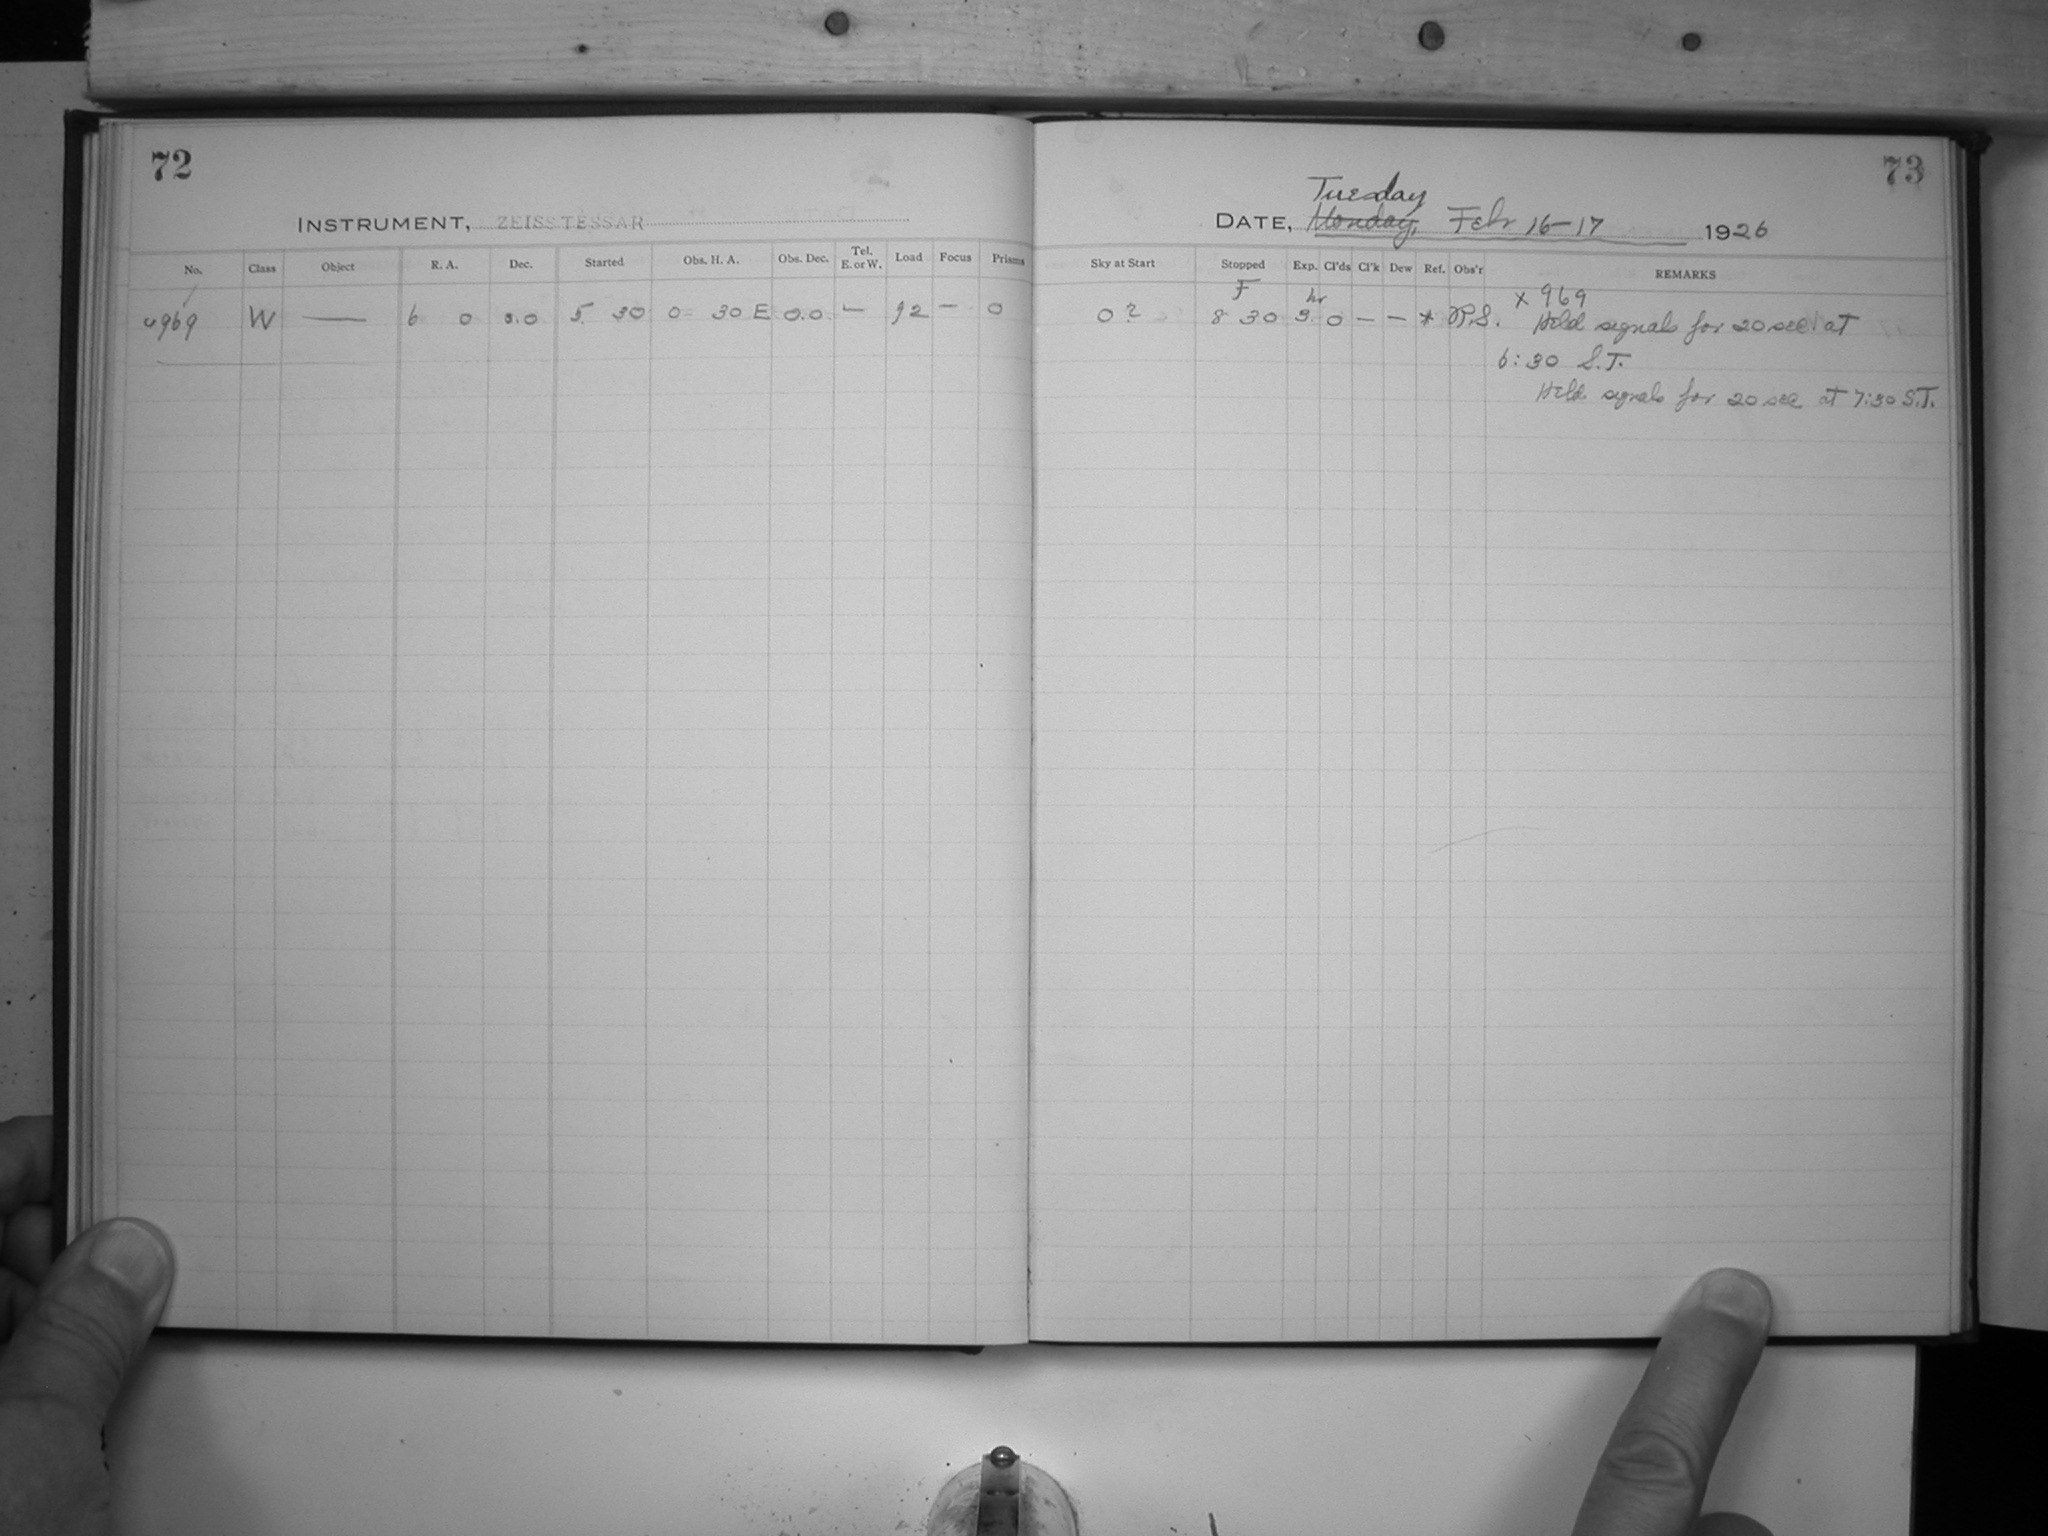 72
INSTRUMENT, ZEISS TESSAR
No. Class Object R. A. Dec. Started Obs. H. A. Obs. Dec. Tel. E. or W. Load Focus Prisms
969 W — 6 0 0.0 5 30 0 30 E 0.0 — 92 — 0
73
Tuesday
DATE, Monday, Feb 16-17 1926
Sky at Start Stopped Exp. Cl'ds Cl'k Dew Ref. Obs'r REMARKS
F hr x 969
0 ? 8 30 3 0 — — * P.S. Held signals for 20 sec at
6:30 S.T.
Held signals for 20 sec at 7:30 S.T.